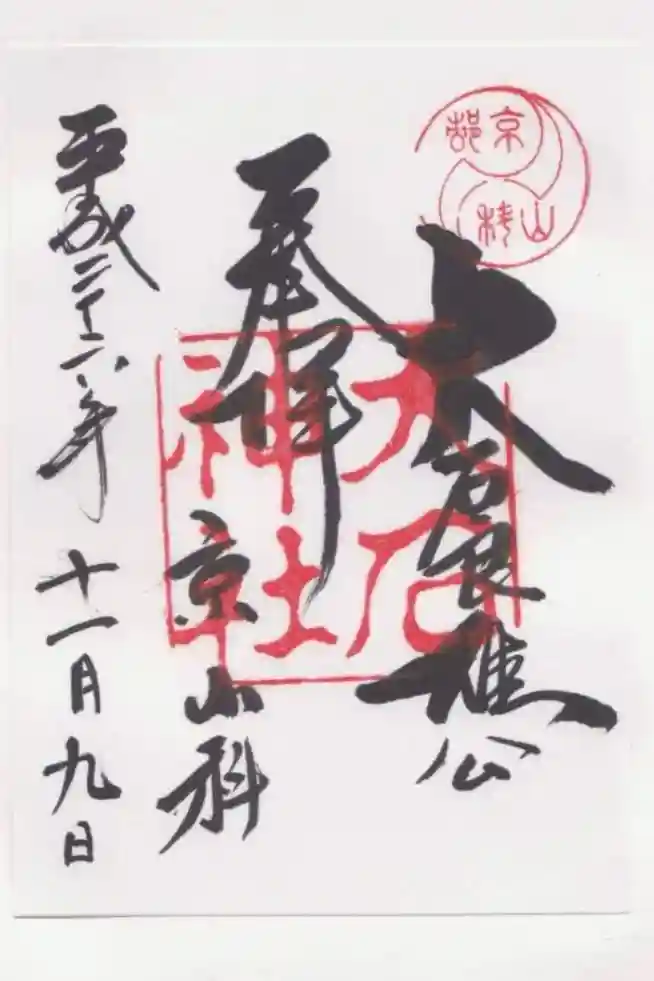 京都
山科
大石良雄公
奉拝
京山科
大石
神社
平成二十六年十一月九日